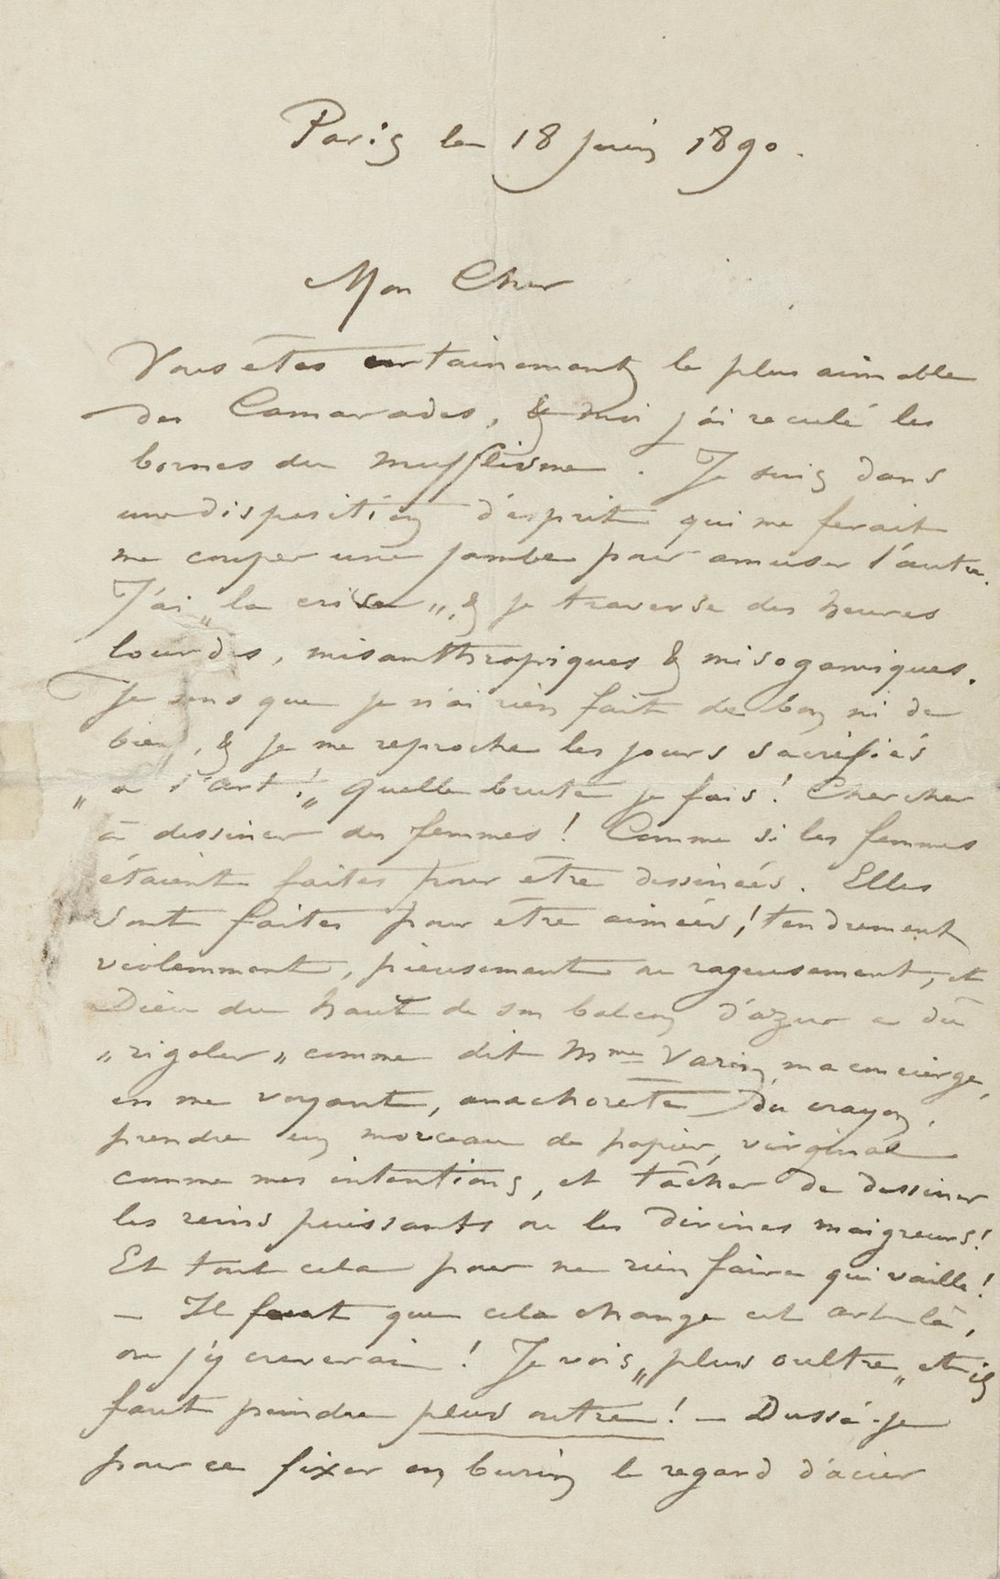 Paris le 18 Juin 1890.
Mon Cher
Vous êtes certainement le plus aimable
des Camarades, & moi j'ai reculé les
bornes du mufflisme. Je suis dans
une disposition d'esprit qui me ferait
me couper une jambe pour amuser l'autre.
J'ai „la crise„ & je traverse des heures
lourdes, misanthropiques & misogamiques.
Je sens que je n'ai rien fait de bon ni de
bien, & je me reproche les jours sacrifiés
„à l'art!„ Quelle brute je fais! Chercher
à dessiner des femmes! Comme si les femmes
étaient faites pour être dessinées. Elles
sont faites pour être aimées! tendrement
violemment, pieusement ou rageusement, et
Dieu du haut de son balcon d'azur a dû
„rigoler„ comme dit Mme Varin, ma concierge,
en me voyant, anachorète du crayon,
prendre un morceau de papier, virginal
comme mes intentions, et tâcher de dessiner
les reins puissants ou les divines maigreurs!
Et tout cela pour ne rien faire qui vaille!
— Il faut que cela change cet art là,
ou j'y creverai! Je vois „plus oultre„ et il
faut peindre plus outre! — Dussé-je
pour ce fixer au burin le regard d'acier